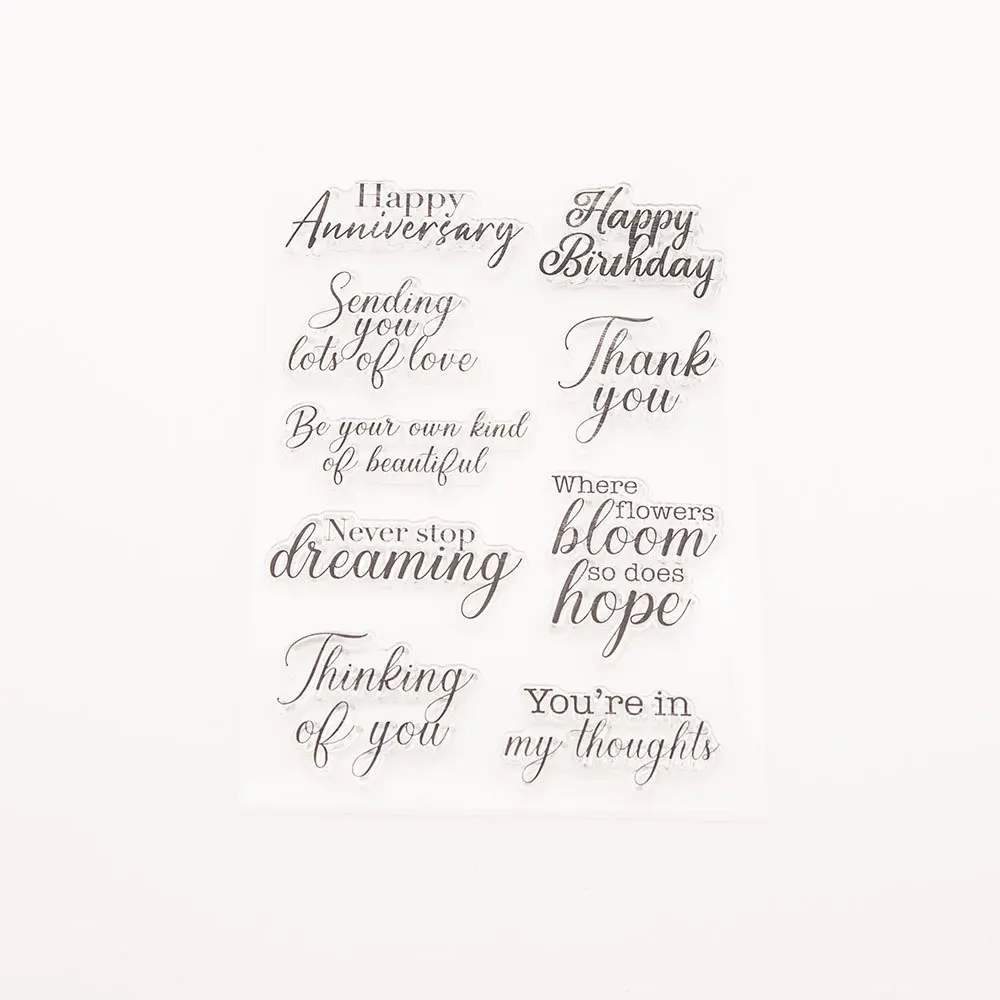 Happy
Anniversary
Sending
you
lots of love
Be your own kind
of beautiful
Never stop
dreaming
Thinking
of you
Happy
Birthday
Thank
you
Where
flowers
bloom
so does
hope
You're in
my thoughts